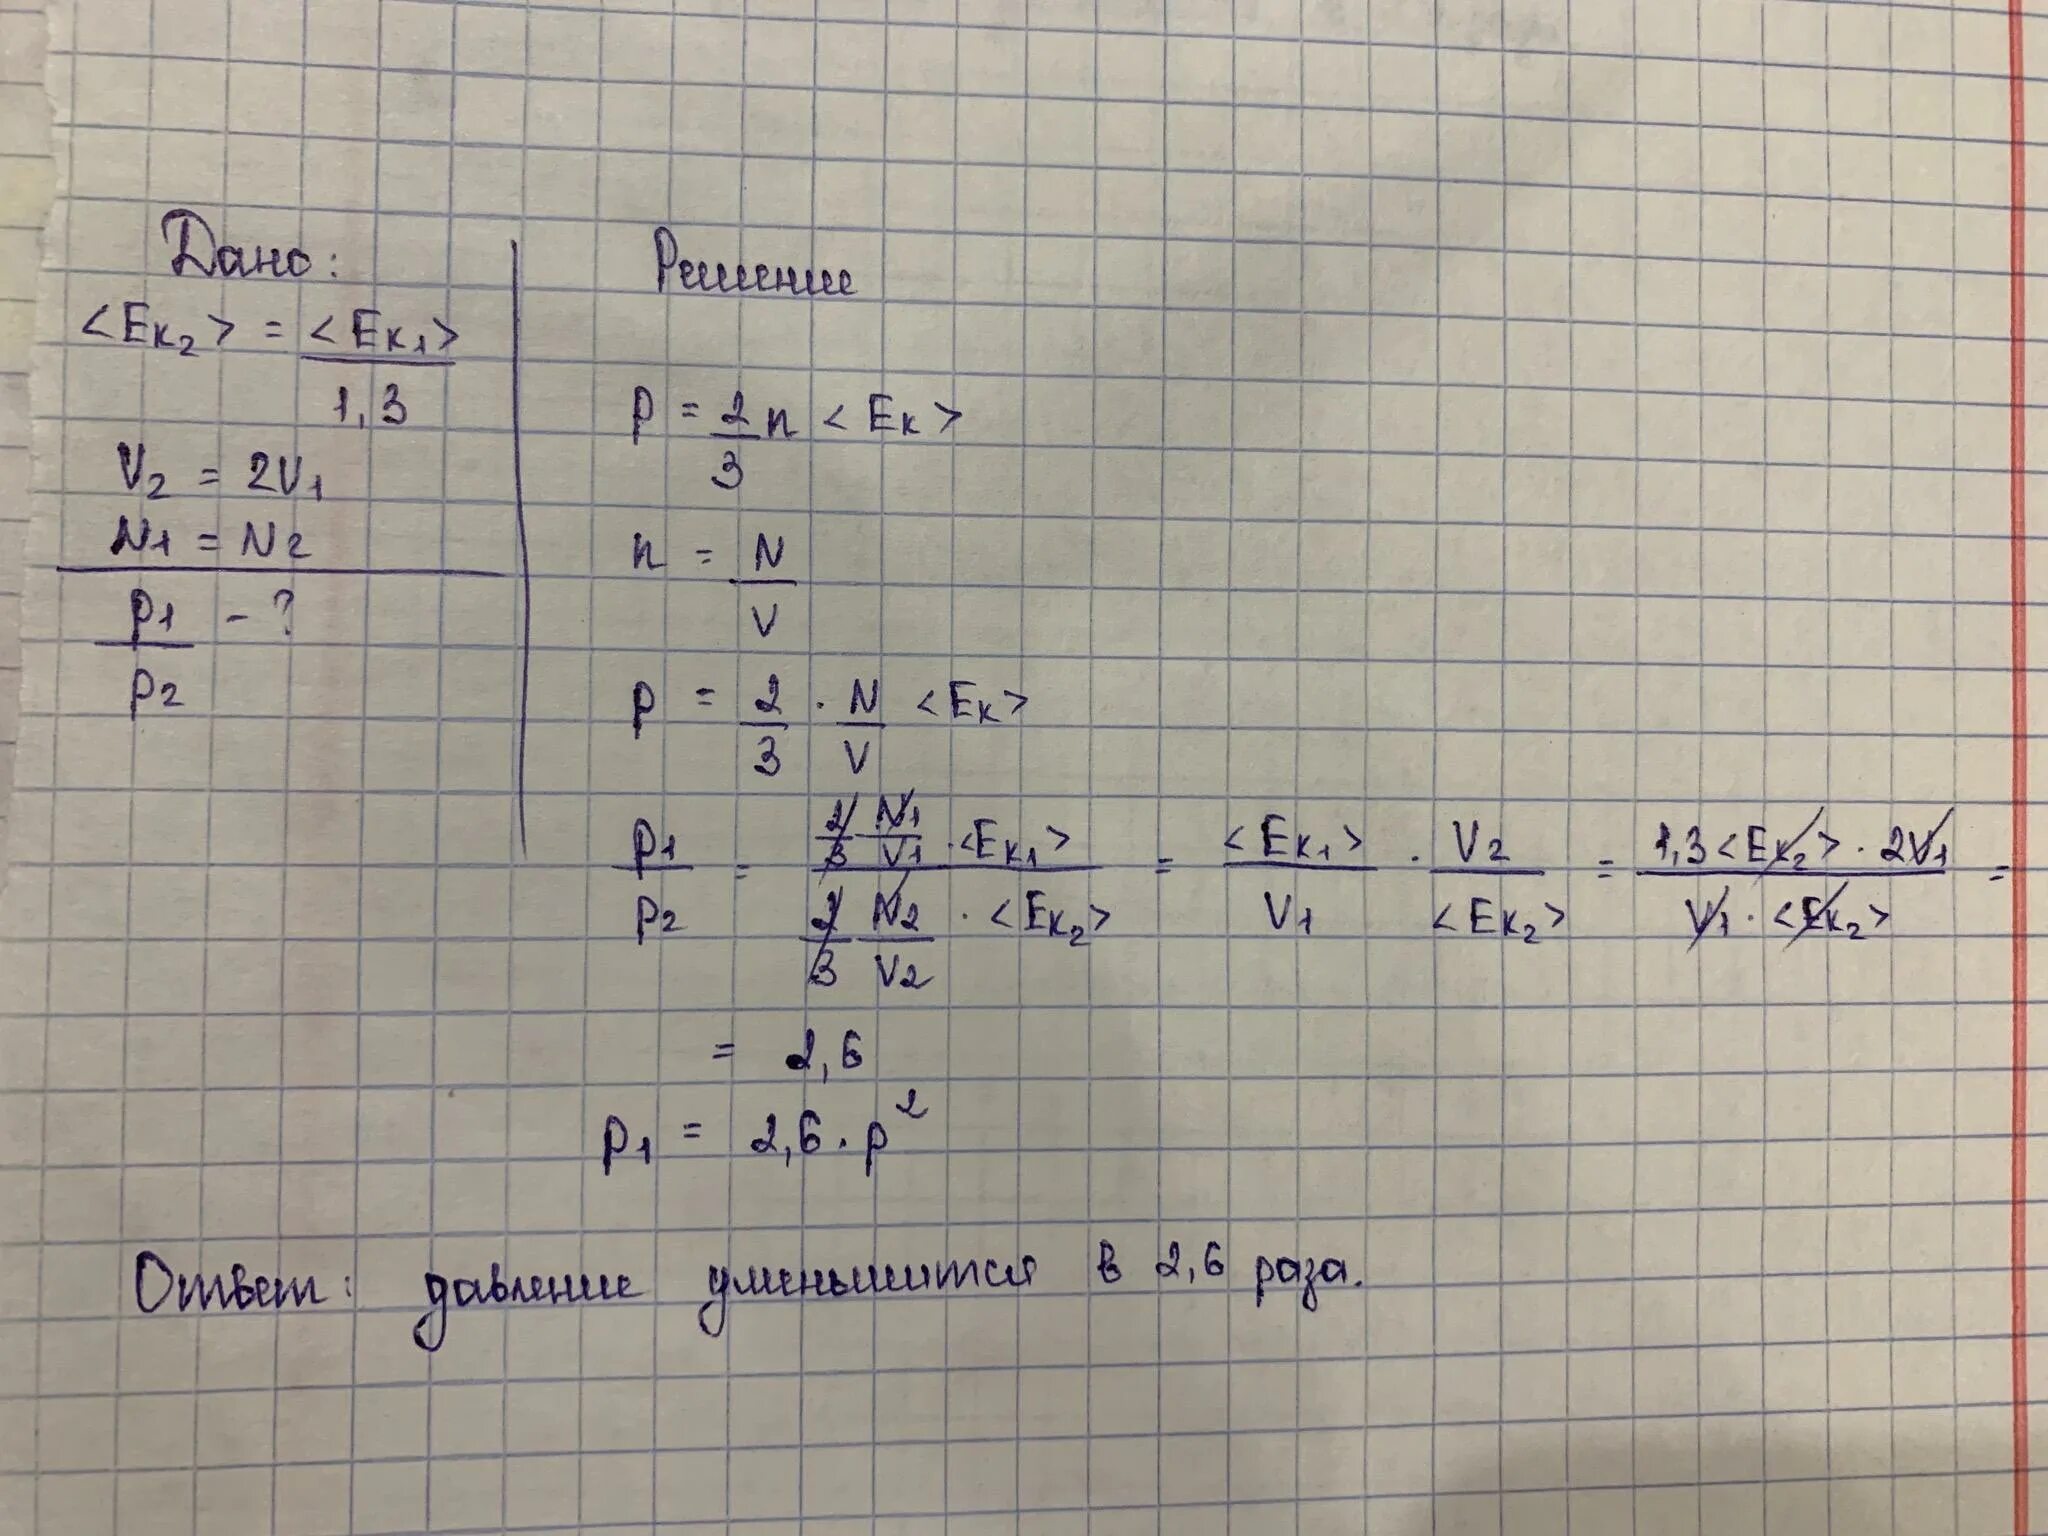 Дано:
<Eк2> = <Eк1> / 1,3
V2 = 2V1
N1 = N2
p1 / p2 - ?
Решение
p = 2/3 n <Eк>
n = N / V
p = 2/3 · N/V <Eк>
p1 / p2 = (2/3 N1/V1 · <Eк1>) / (2/3 N2/V2 · <Eк2>) = <Eк1> / V1 · V2 / <Eк2> = (1,3 <Eк2> · 2V1) / (V1 · <Eк2>) =
= 2,6
p1 = 2,6 · p²
Ответ: давление уменьшится в 2,6 раза.